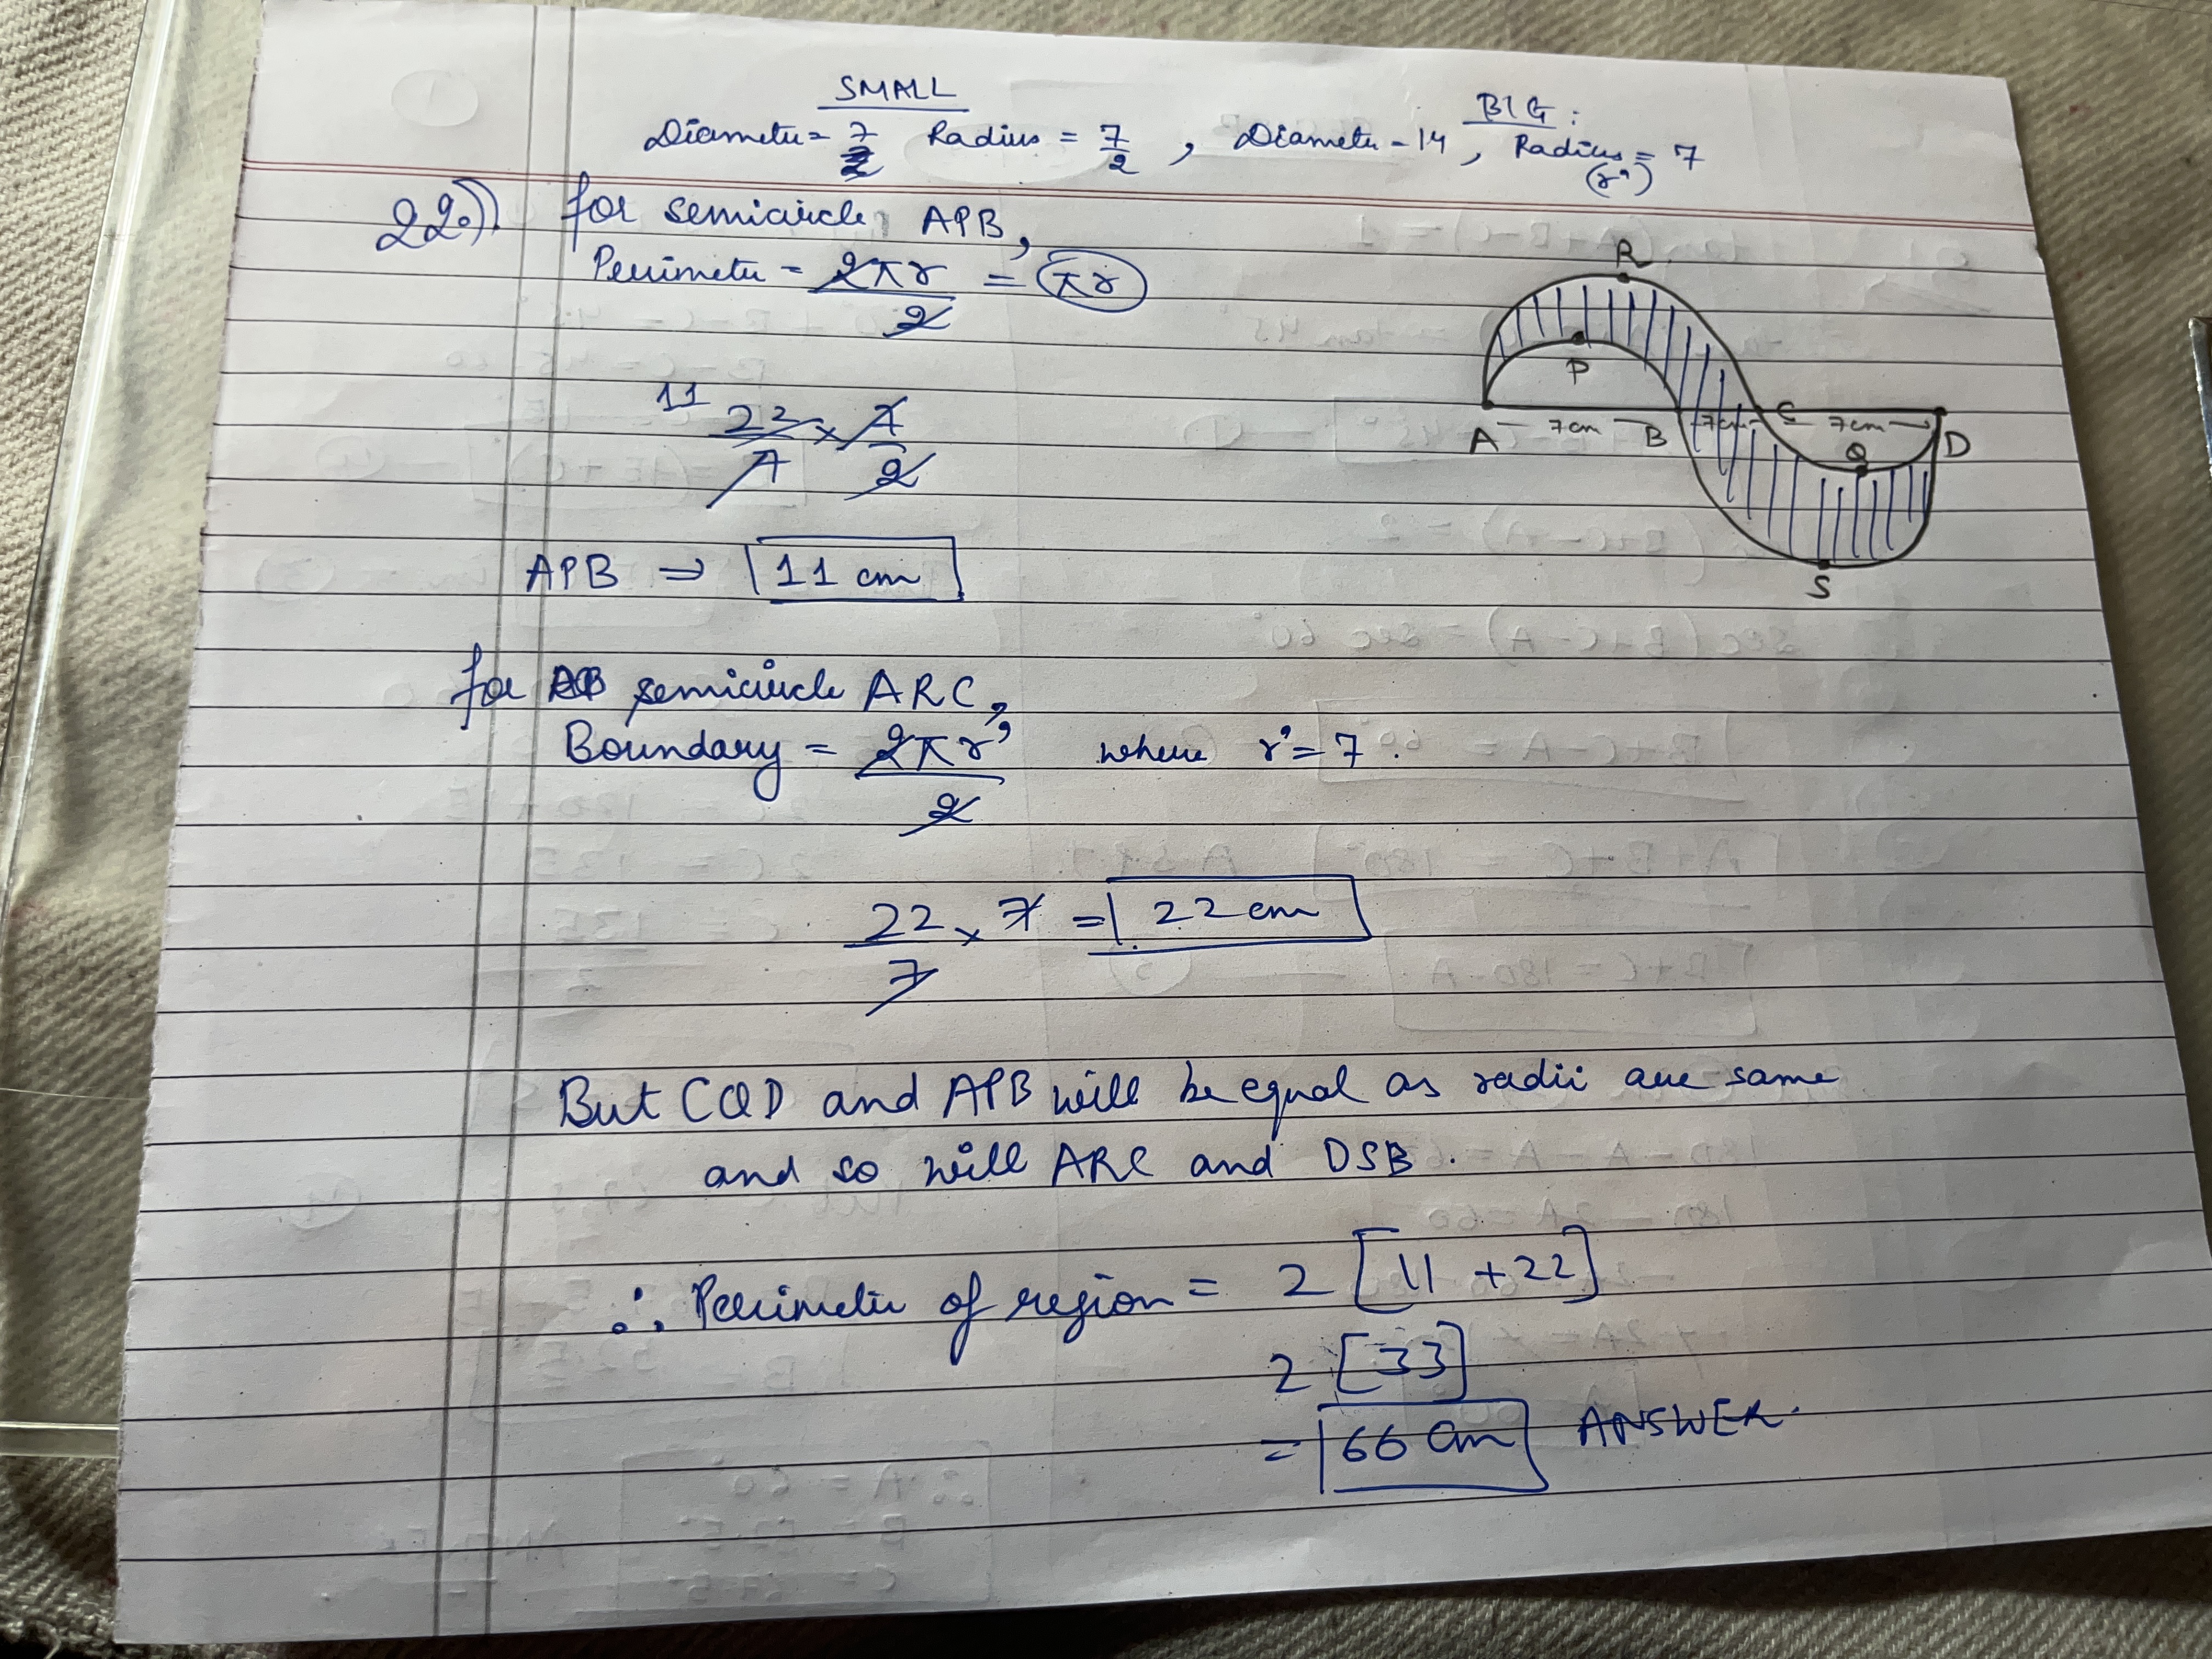 SMALL
Diameter = 7 Radius = 7/2 , Diameter = 14 , Radius = 7
BIG :
(r')
22.) for semicircle APB,
Perimeter = 2πr/2 = πr
11 22/7 × 7/2
APB ⇒ 11 cm
for semicircle ARC,
Boundary = 2πr'/2 where r' = 7.
22/7 × 7 = 22 cm
But CQD and APB will be equal as radii are same
and so will ARC and DSB.
∴ Perimeter of region = 2 [11 + 22]
2 [33]
= 66 cm ANSWER.
R
P
A 7cm B 7cm C 7cm D
Q
S